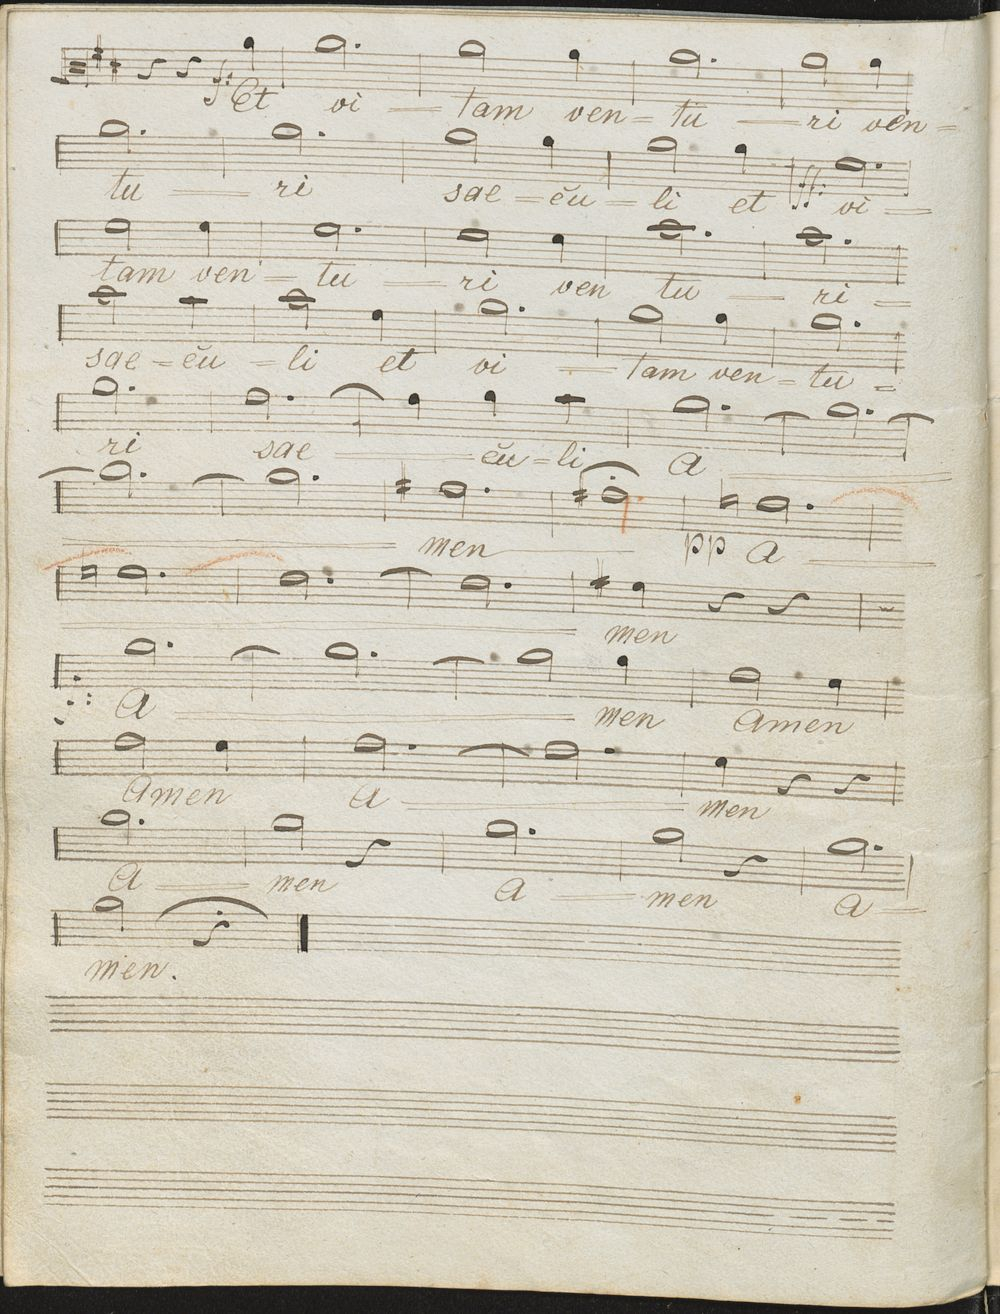 f: Et vi — tam ven = tu — ri ven =
tu — ri sae = cu = li et ff: vi =
tam ven = tu — ri ven tu — ri =
sae = cu = li et vi — tam ven = tu =
ri sae — cu = li A
men pp A
men
f: A men Amen
Amen A men
A — men A — men A —
men.